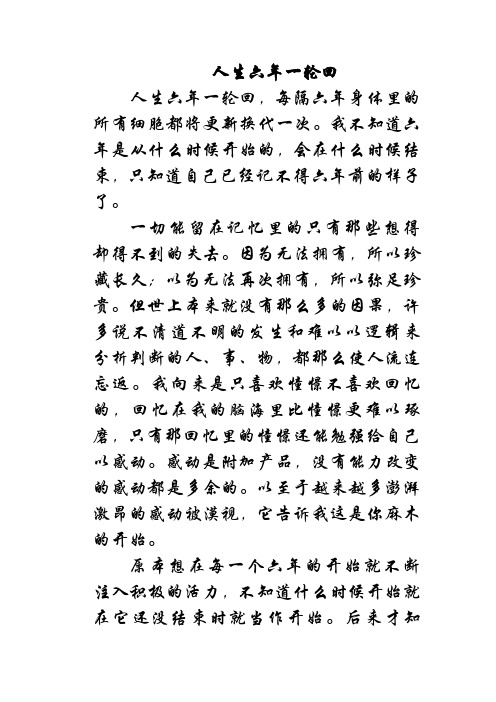 人生六年一轮回
人生六年一轮回，每隔六年身体里的
所有细胞都将更新换代一次。我不知道六
年是从什么时候开始的，会在什么时候结
束，只知道自己已经记不得六年前的样子
了。
一切能留在记忆里的只有那些想得
却得不到的失去。因为无法拥有，所以珍
藏长久；以为无法再次拥有，所以弥足珍
贵。但世上本来就没有那么多的因果，许
多说不清道不明的发生和难以以逻辑来
分析判断的人、事、物，都那么使人流连
忘返。我向来是只喜欢憧憬不喜欢回忆
的，回忆在我的脑海里比憧憬更难以琢
磨，只有那回忆里的憧憬还能勉强给自己
以感动。感动是附加产品，没有能力改变
的感动都是多余的。以至于越来越多澎湃
激昂的感动被漠视，它告诉我这是你麻木
的开始。
原本想在每一个六年的开始就不断
注入积极的活力，不知道什么时候开始就
在它还没结束时就当作开始。后来才知